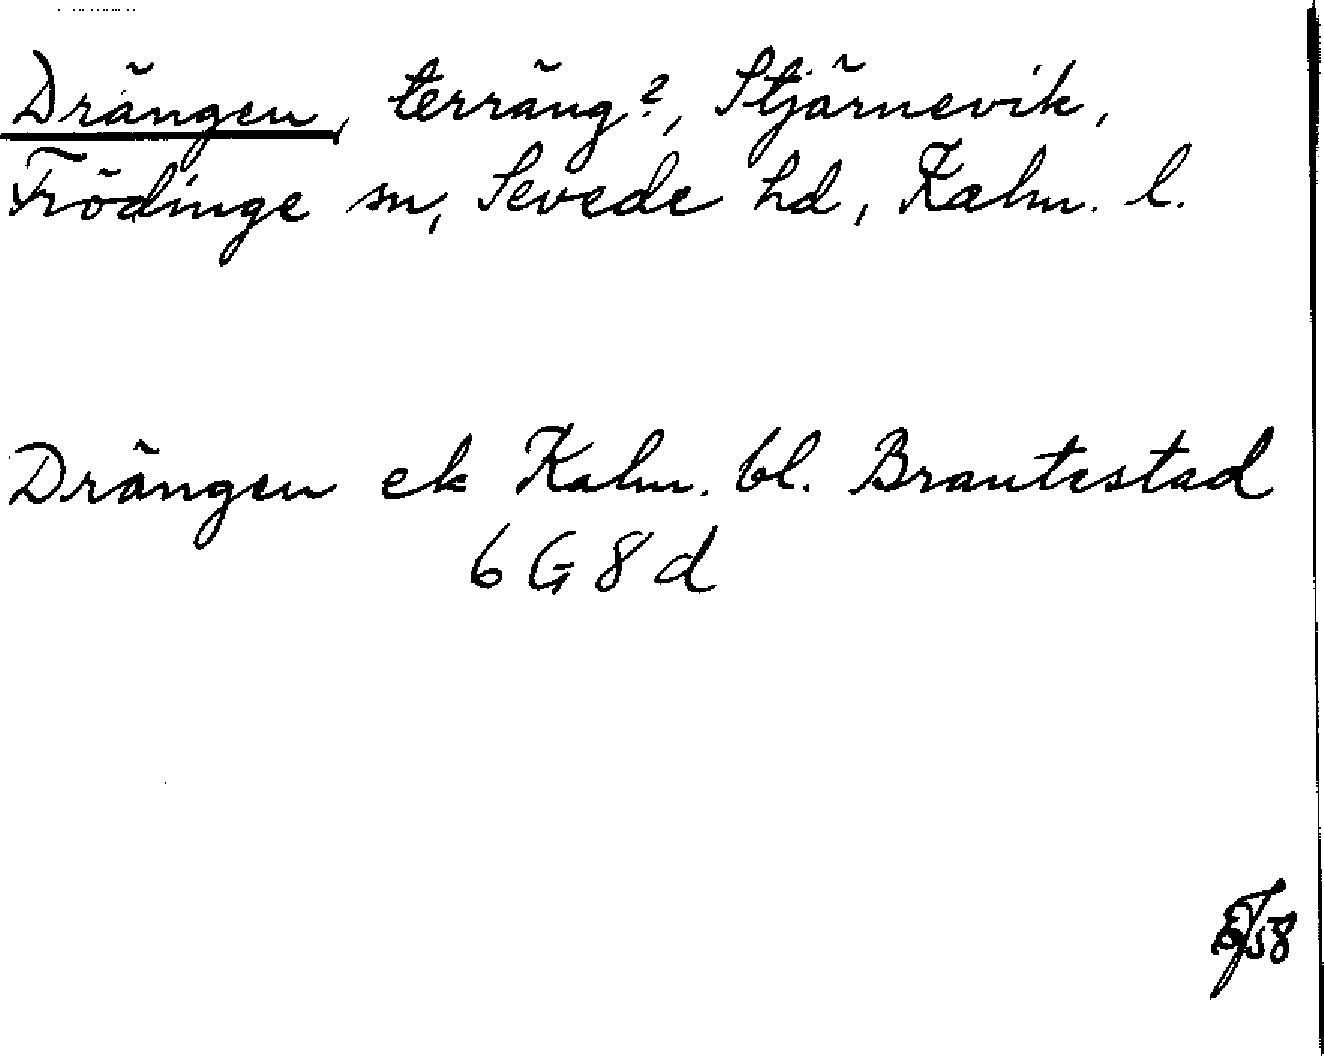 Drängen, terräng?, Stjärnevik,
Frödinge sn, Sevede hd, Kalm. l.
Drängen ek Kalm. bl. Brantestad
6 G 8 d